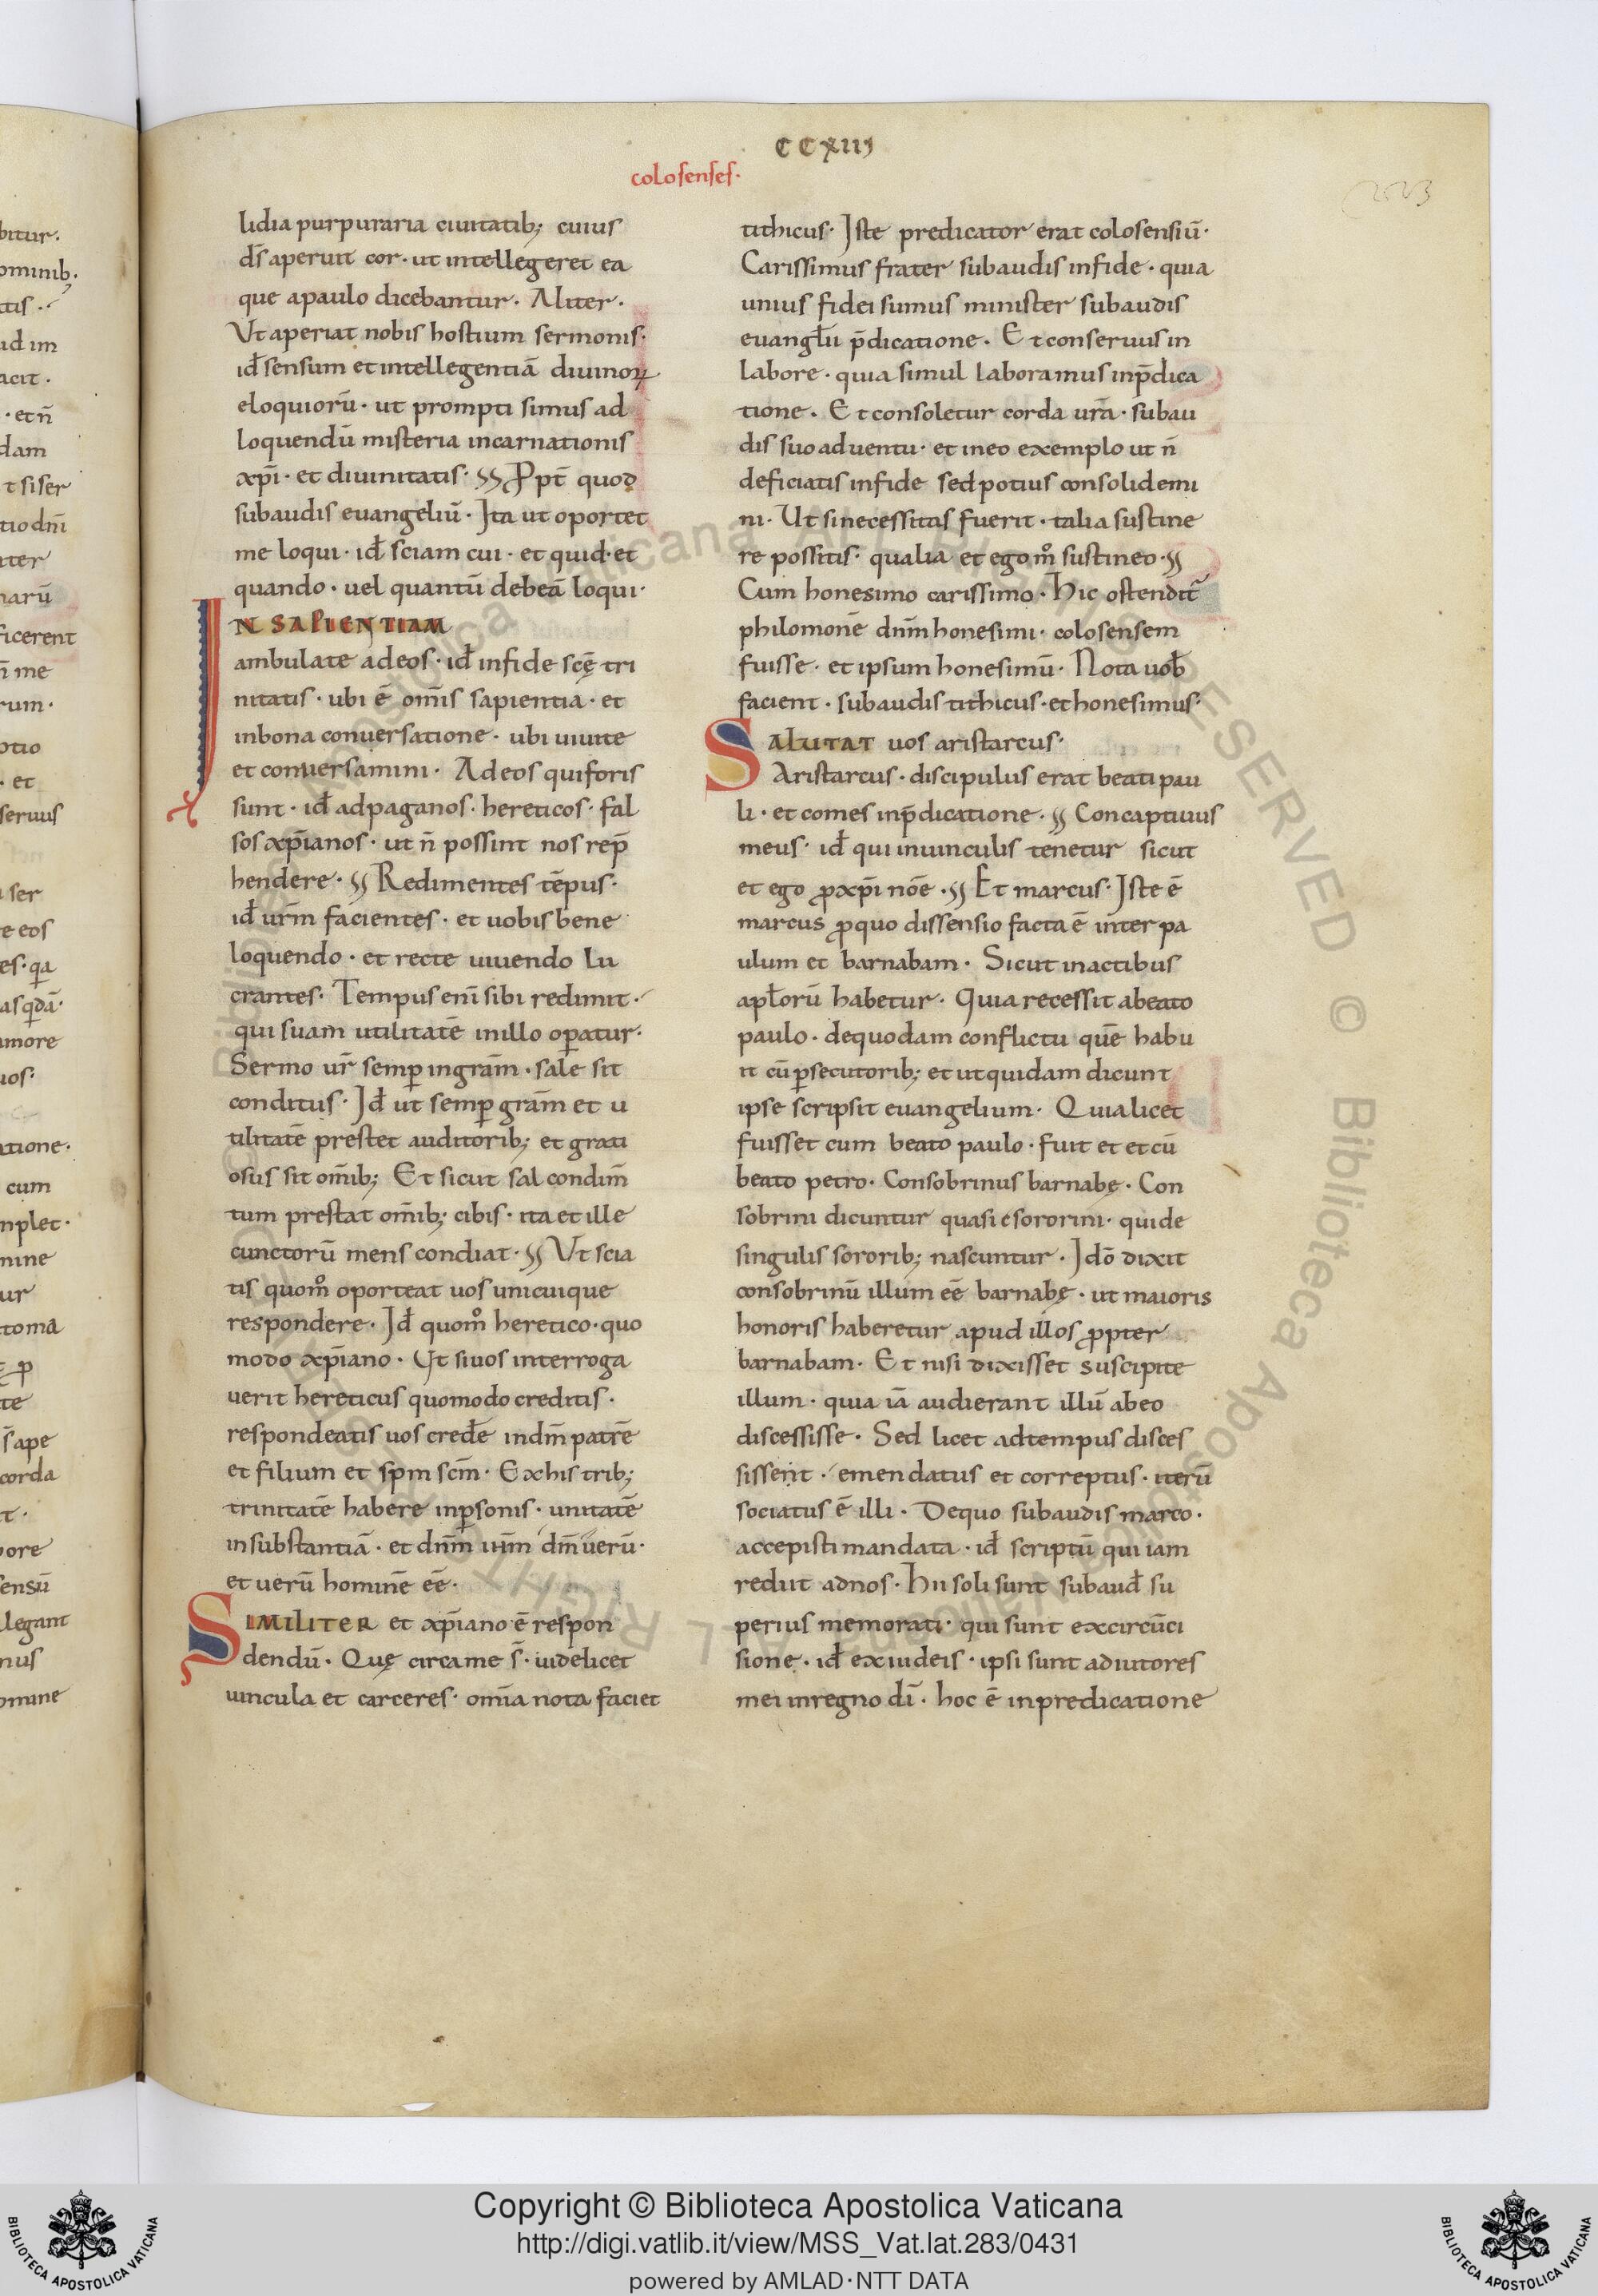 CCXIII
colosenses·
223
lidia purpuraria ciuitatib; cuius
d̄s aperuit cor· ut intellegeret ea
que apaulo dicebantur· Aliter·
Vt aperiat nobis hostium sermonis·
id̄ sensum et intellegentiā diuinoꝝ
eloquiorū· ut prompti simus ad
loquendū misteria incarnationis
xp̄i· et diuinitatis· §§ Ppt̄ quod
subaudis euangeliū· Ita ut oportet
me loqui· id̄ sciam cui· et quid· et
quando· uel quantū debeā loqui·
IN SAPIENTIAM
ambulate adeos· id̄ infide scę̄ tri
nitatis· ubi ē om̄is sapientia· et
inbona conuersatione· ubi uiuite
et conuersamini· Adeos quiforis
sunt· id̄ adpaganos· hereticos· fal
sos xp̄ianos· ut n̄ possint nos rep̄
hendere· §§ Redimentes tēpus·
id̄ ur̄m facientes· et uobis bene
loquendo· et recte uiuendo lu
crantes· Tempus eni̅ sibi redimit·
qui suam utilitatē inillo oꝑatur·
Sermo ur̄ semꝑ ingrām· sale sit
conditus· Id̄ ut semꝑ grām et u
tilitatē prestet auditorib; et grati
osus sit om̄ib; Et sicut sal condim̄
tum prestat om̄ib; cibis· ita et ille
cunctorū mens condiat· §§ Vt scia
tis quom̊ oporteat uos unicuique
respondere· Id̄ quom̊ heretico· quo
modo xp̄iano· Vt siuos interroga
uerit hereticus quomodo creditis·
respondeatis uos cred̄e indm̄ patrē
et filium et spm scm̄· Exhis trib;
trinitatē habere inꝑsonis· unitatē
insubstantiā· et dnm̄ ihm̄ dm̄ uerū·
et uerū hominē ee̅·
SIMILITER et xp̄iano ē respon
dendū· Quę circame s̄· uidelicet
uincula et carceres· om̄ia nota faciet
tithicus· Iste predicator erat colosensiū·
Carissimus frater subaudis infide· quia
unius fidei sumus minister subaudis
euangłii p̄dicatione· Et conseruus in
labore· quia simul laboramus inp̄dica
tione· Et consoletur corda ur̄a· subau
dis suo aduentu· et ineo exemplo ut n̄
deficiatis infide sed potius consolidemi
ni· Ut sinecessitas fuerit· talia sustine
re possitis· qualia et ego m̊ sustineo· §§
Cum honesimo carissimo· Hic ostendit̄
philomonē dnm̄ honesimi· colosensem
fuisse· et ipsum honesimū· Nota uob̄
facient· subaudis tithicus· et honesimus·
SALUTAT uos aristarcus·
Aristarcus· discipulus erat beati pau
li· et comes inp̄dicatione· §§ Concaptiuus
meus· id̄ qui inuinculis tenetur sicut
et ego ꝓxp̄i noe̅· §§ Et marcus· Iste ē
marcus ꝓquo dissensio facta ē inter pa
ulum et barnabam· Sicut inactibus
apłorū habetur· Quia recessit abeato
paulo· dequodam conflictu quē habu
it cū ꝑsecutorib; et ut quidam dicunt
ipse scripsit euangelium· Quia licet
fuisset cum beato paulo· fuit et et cū
beato petro· Consobrinus barnabę· Con
sobrini dicuntur quasi esororini· qui de
singulis sororib; nascuntur· Idō dixit
consobrinū illum ee̅ barnabę· ut maioris
honoris haberetur apud illos ꝓpter
barnabam· Et nisi dixisset suscipite
illum· quia iā audierant illū abeo
discessisse· Sed licet adtempus disces
sissent· emendatus et correptus· iterū
sociatus ē illi· Dequo subaudis marco·
accepisti mandata· id̄ scriptū qui iam
rediit adnos· Hii soli sunt subaud̄ su
perius memorati· qui sunt excircūci
sione· id̄ exiudeis· ipsi sunt adiutores
mei inregno di̅· hoc ē inpredicatione
Copyright © Biblioteca Apostolica Vaticana
http://digi.vatlib.it/view/MSS_Vat.lat.283/0431
powered by AMLAD·NTT DATA